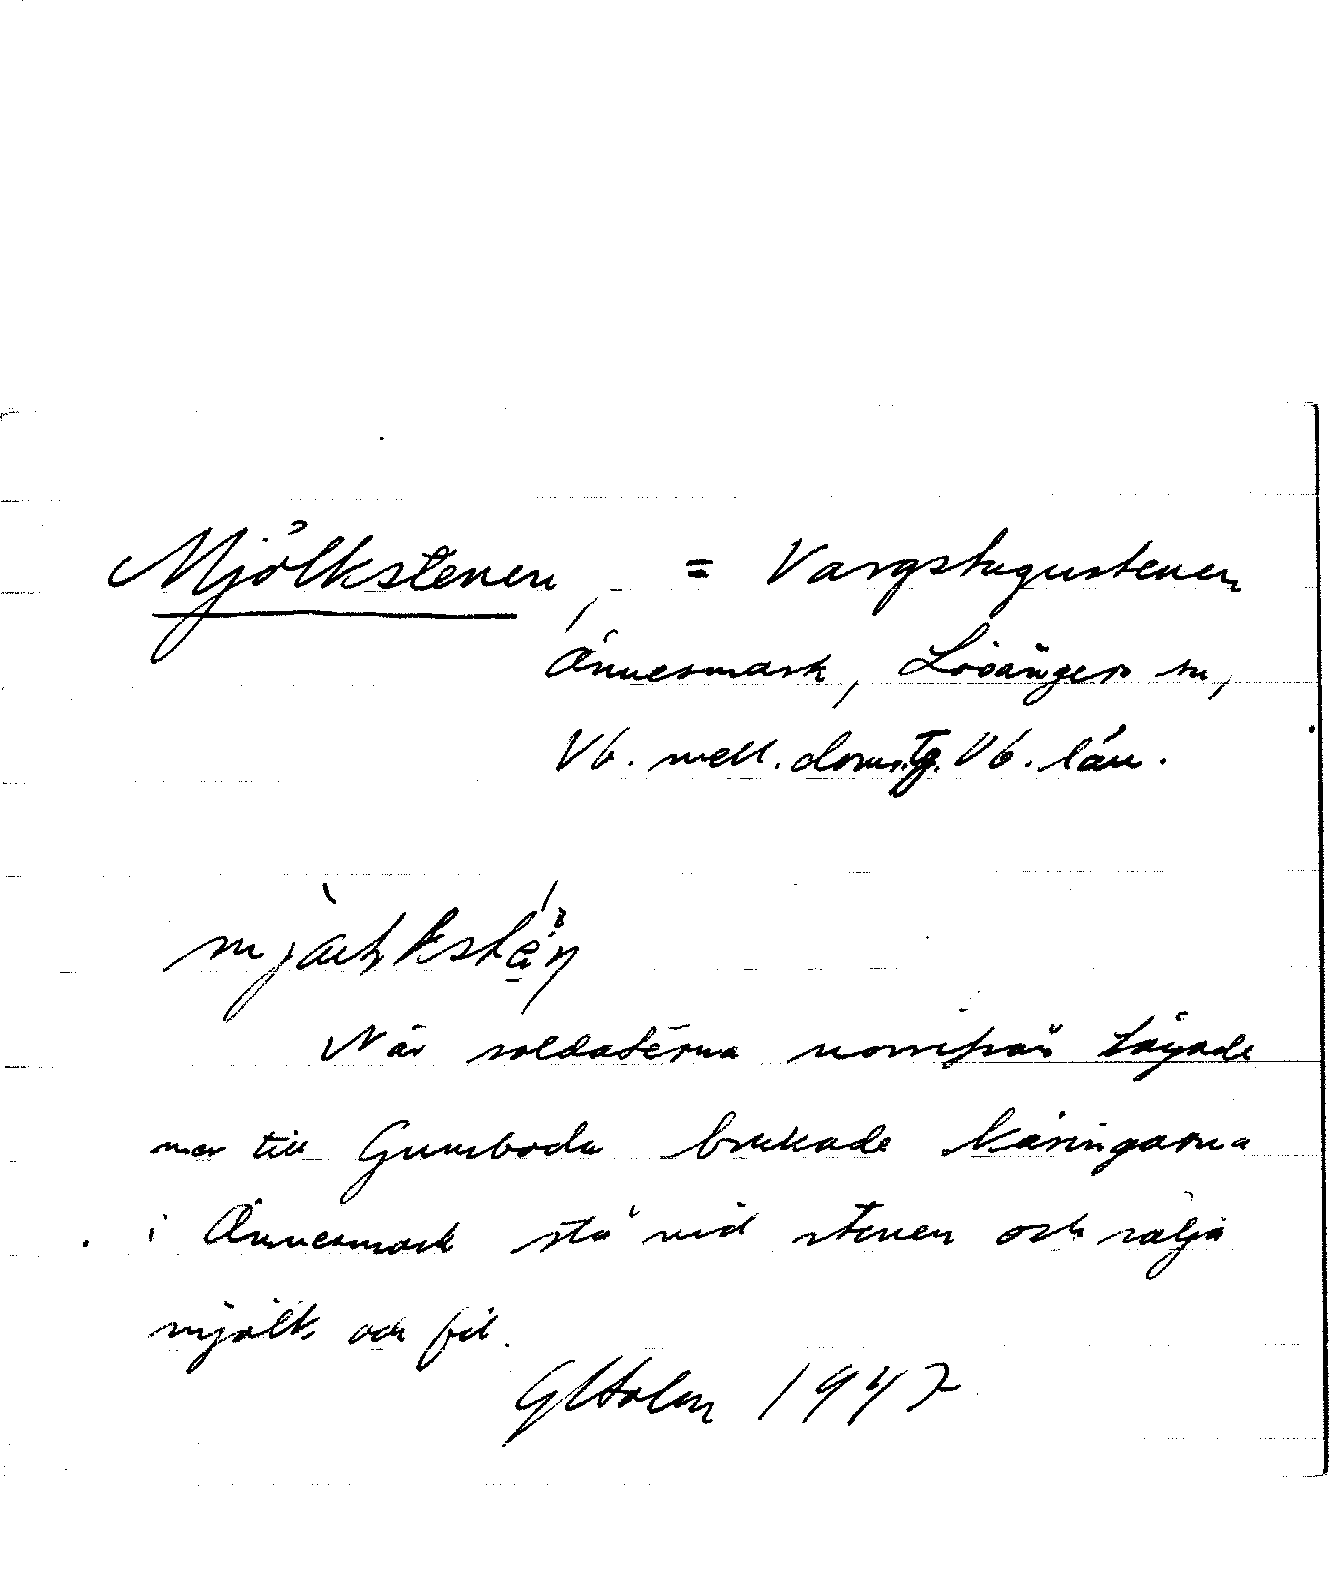 Mjölkstenen, = Vargstugustenen
Ånnesmark, Lövångers sn,
Vb. mell. doms.tg. Vb. län.
När soldaterna norrifrån tågade
ner till Gumboda brukade käringarna
i Ånnesmark stå vid stenen och sälja
mjölk och fil.
G Holm 1947